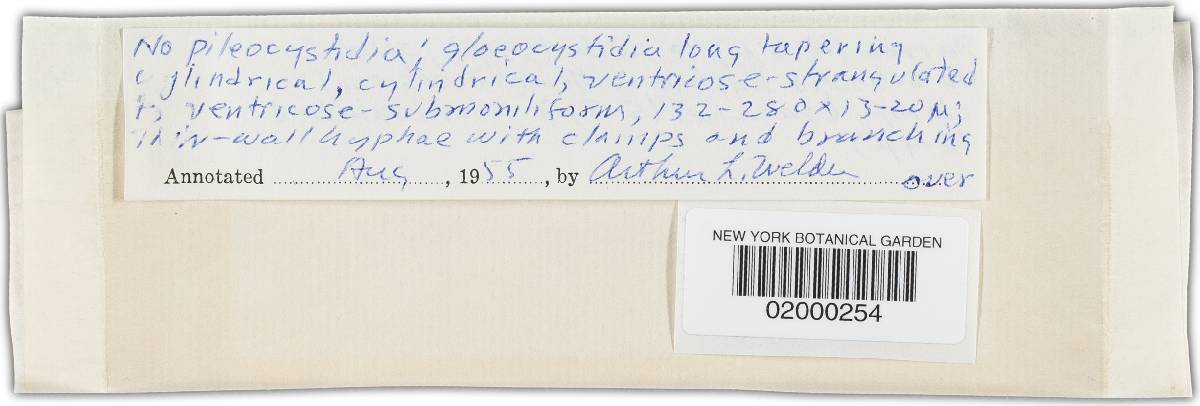 No pileocystidia; gloeocystidia long tapering
cylindrical, cylindrical, ventricose-strangulated
ventricose-submoniliform, 132-280 x 13-20 µ;
thin-wall hyphae with clamps and branching
Annotated Aug, 1955, by Arthur L. Welden over
NEW YORK BOTANICAL GARDEN
02000254